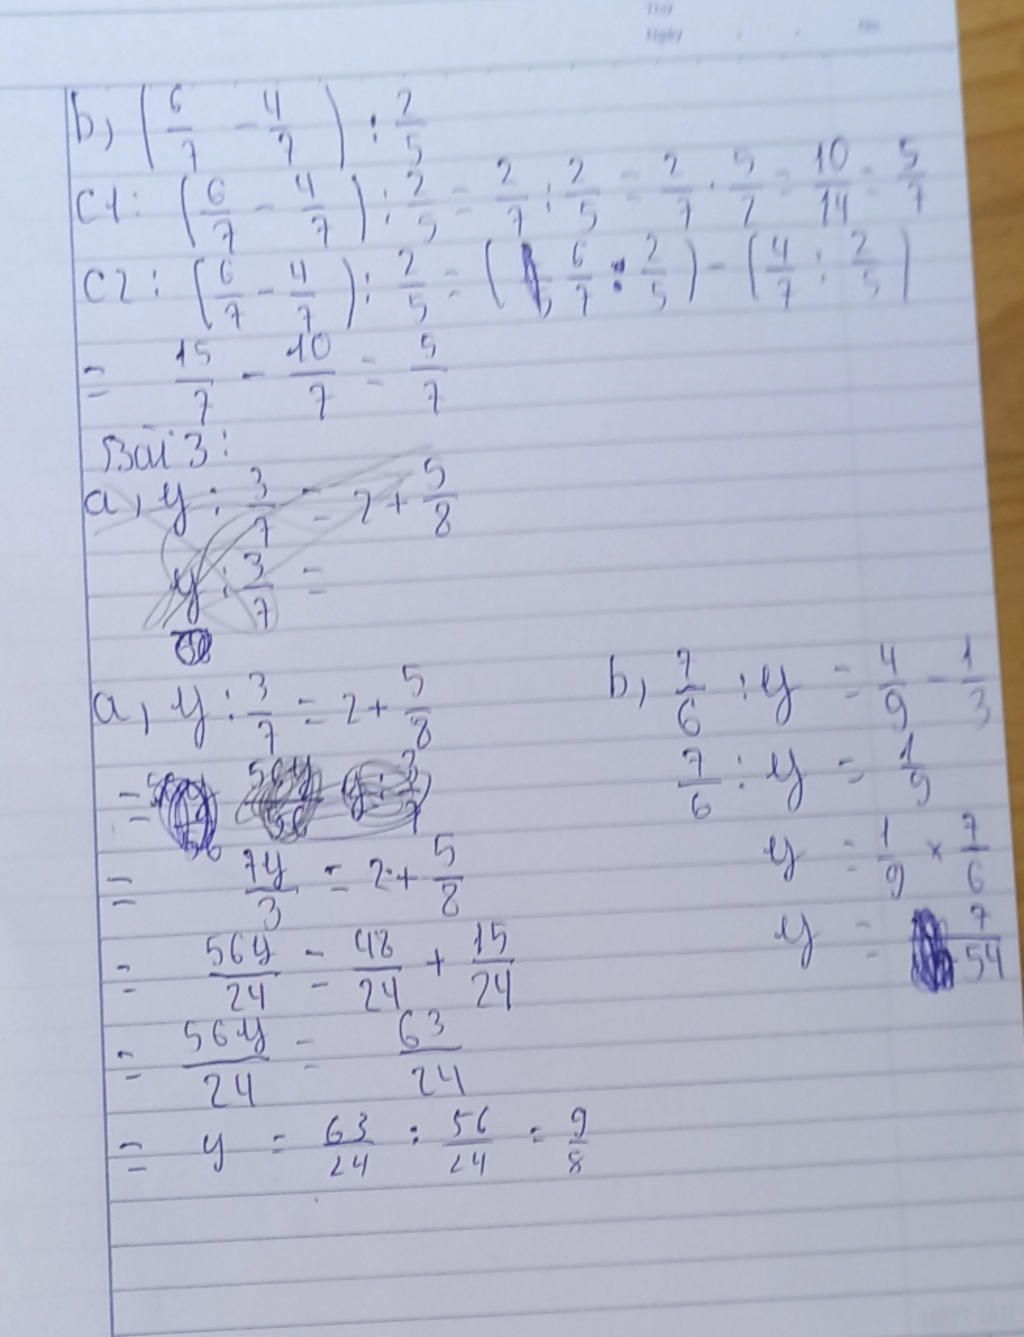 Thứ
Ngày . . No.
b, (6/7 - 4/7) : 2/5
C1: (6/7 - 4/7) : 2/5 = 2/7 : 2/5 = 2/7 . 5/2 = 10/14 = 5/7
C2: (6/7 - 4/7) : 2/5 = (6/7 : 2/5) - (4/7 : 2/5)
= 15/7 - 10/7 = 5/7
Bài 3:
a, y : 3/7 = 2 + 5/8
y : 3/7 =
a, y : 3/7 = 2 + 5/8
= 7y/3 = 2 + 5/8
= 56y/24 = 48/24 + 15/24
= 56y/24 = 63/24
= y = 63/24 : 56/24 = 9/8
b, 7/6 : y = 4/9 - 1/3
7/6 : y = 1/9
y = 1/9 × 7/6
y = 7/54